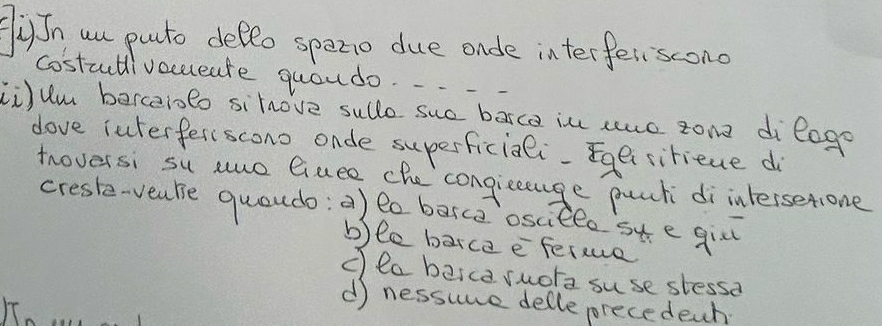 i) In un punto dello spazio due onde interferiscono
costruttivamente quando.....
ii) Un barcaiolo si trova sulla sua barca in una zona di lago
dove interferiscono onde superficiali - Egli ritiene di
trovarsi su una linea che congiunge punti di intersezione
cresta-ventre quando: a) la barca oscilla su e giù
b) la barca è ferma
c) la barca ruota su se stessa
d) nessuna delle precedenti